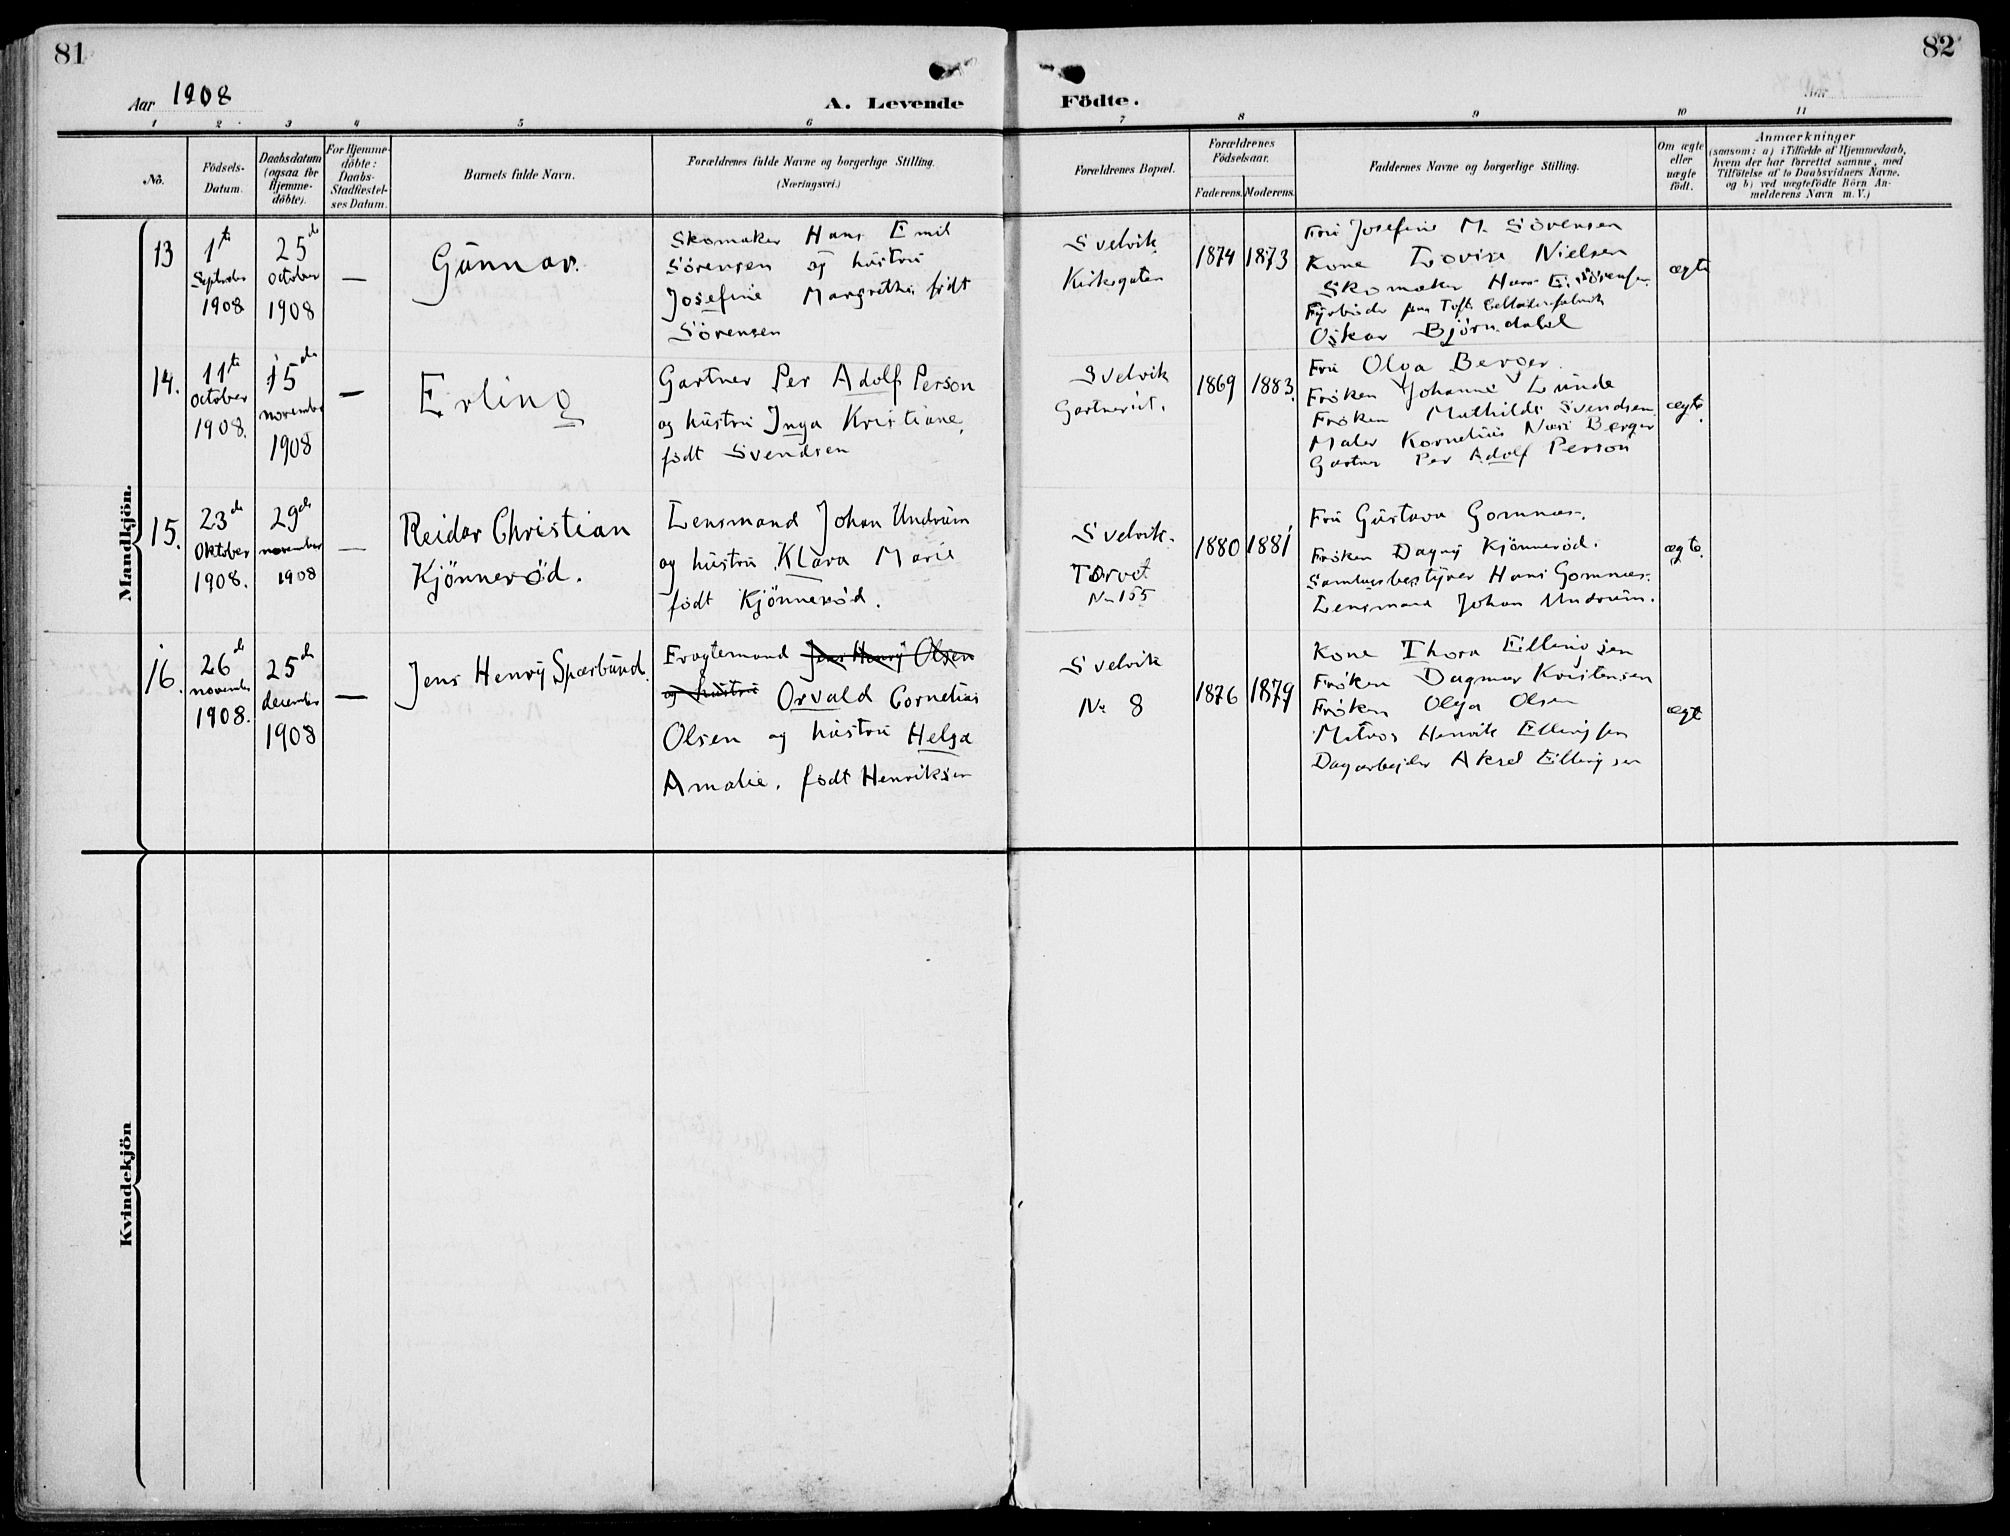 81
82
Aar 1908
A. Levende
Födte.
1
2
3
4
5
6
7
8
9
10
11
No.
Födsels-
Datum.
Daabsdatum
(ogsaa for
Hjemme-
döbte).
For Hjemme-
döbte:
Daabs-
Stadfæstel-
ses Datum.
Barnets fulde Navn.
Forældrenes fulde Navne og borgerlige Stilling.
(Næringsvei.)
Forældrenes Bopæl.
Forældrenes
Födselsaar.
Faderens.
Moderens.
Faddernes Navne og borgerlige Stilling.
Om ægte
eller
uægte
födt.
Anmærkninger
(saasom: a) i Tilfælde af Hjemmedaab,
hvem der har forrettet samme, med
Tilföielse af to Daabsvidners Navne,
og b) ved uægtefödte Börn An-
melderens Navn m. V.)
Mandkjön.
13
1te
September
1908
25de
October
1908
—
Gunnar.
Skomaker Hans Emil
Sörensen og hustru
Josefine Margrethe født
Sörensen
Svelvik
Kirkegaten
1874
1873
Fru Josefine M. Sörensen
Kone Lovise Nielsen
Skomaker Hans E. Sörensen
Fyrbøder paa Tofte Cellulosefabrik
Oskar Björndahl
ægte
14.
11te
October
1908.
15de
november
1908
—
Erling
Gartner Per Adolf Person
og hustru Inga Kristiane,
født Svendsen
Svelvik
Gartneriet.
1869
1883.
Fru Olga Berger
Frøken Johanne Lunde
Frøken Mathilde Svendsen
Maler Kornelius Berger
Gartner Per Adolf Person
ægte.
15.
23de
Oktober
1908.
29de
november
1908
—
Reidar Christian
Kjönneröd.
Lensmand Johan Undrum
og hustru Klara Marie
født Kjönneröd.
Svelvik.
Torvet
No 155
1880
1881
Fru Gustava Gomnæs.
Frøken Dagny Kjönneröd.
Samlagsbestyrer Hans Gomnæs.
Lensmand Johan Undrum.
ægte.
16.
26de
november
1908.
25de
december
1908
—
Jens Henry Spærbund.
Fragtemand Jens Henry Olsen
og hustru Osvald Cornelius
Olsen og hustru Helga
Amalie, født Henriksen
Svelvik
No 8
1876
1879
Kone Thora Ellingsen
Frøken Dagmar Kristensen
Frøken Olga Olsen
Matros Henrik Ellingsen
Dagarbejder Aksel Ellingsen
ægte
Kvindekjön